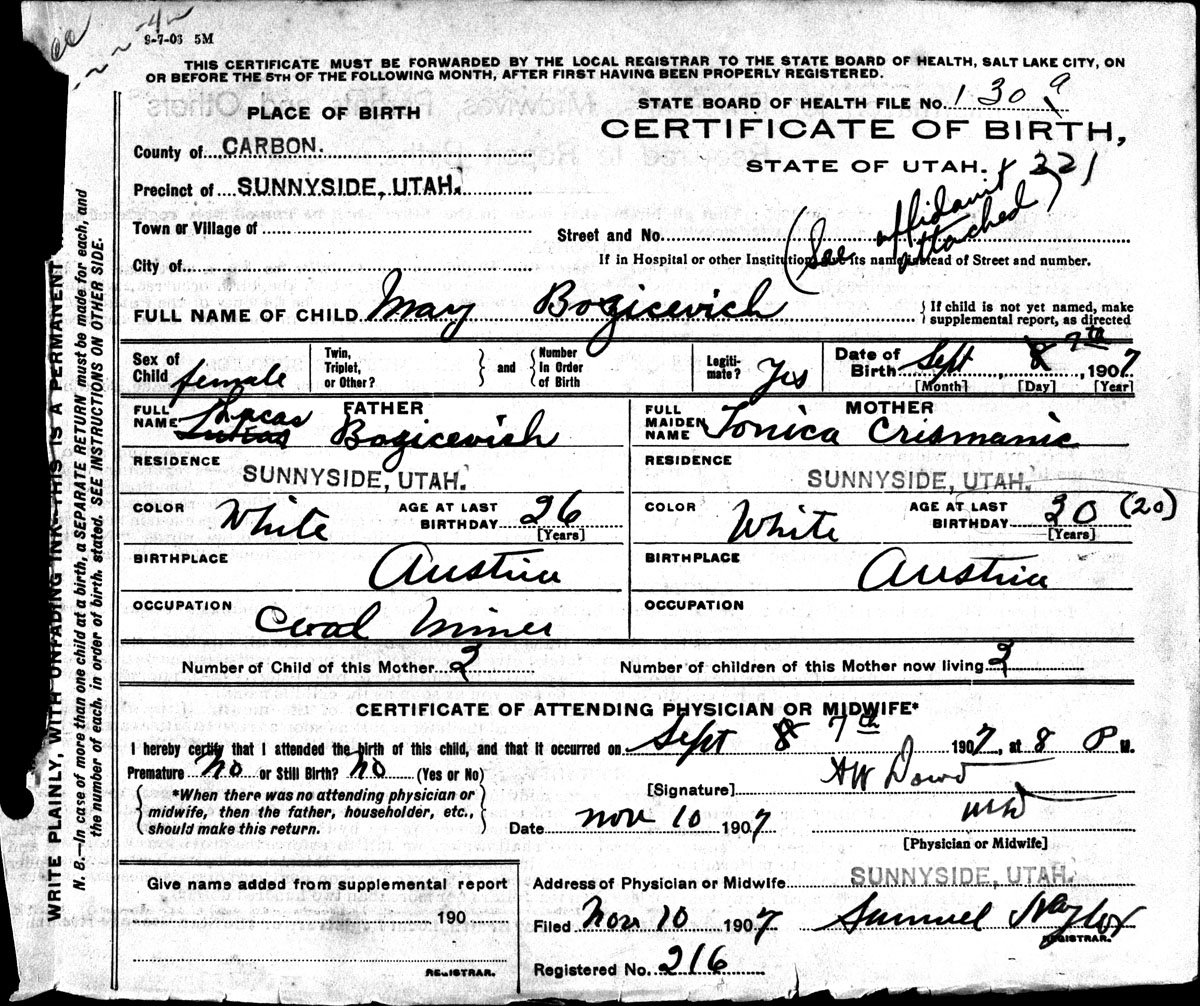 9-7-03 5M
THIS CERTIFICATE MUST BE FORWARDED BY THE LOCAL REGISTRAR TO THE STATE BOARD OF HEALTH, SALT LAKE CITY, ON
OR BEFORE THE 5TH OF THE FOLLOWING MONTH, AFTER FIRST HAVING BEEN PROPERLY REGISTERED.
STATE BOARD OF HEALTH FILE No. 1309
PLACE OF BIRTH
CERTIFICATE OF BIRTH,
County of CARBON.
STATE OF UTAH. 221
Precinct of SUNNYSIDE, UTAH.
(See affidavit attached)
Town or Village of
Street and No.
City of
If in Hospital or other Institution, give its name instead of Street and number.
FULL NAME OF CHILD Mary Bogicevich
If child is not yet named, make
supplemental report, as directed
Sex of Child female
Twin, Triplet, or Other? and Number In Order of Birth
Legiti-mate? Yes
Date of Birth Sept 8 7th, 1907
[Month] [Day] [Year]
FATHER
FULL NAME Lucas Bogicevich
MOTHER
FULL MAIDEN NAME Tonica Crismanic
RESIDENCE
SUNNYSIDE, UTAH.
RESIDENCE
SUNNYSIDE, UTAH.
COLOR White
AGE AT LAST BIRTHDAY 26
[Years]
COLOR White
AGE AT LAST BIRTHDAY 20 (20)
[Years]
BIRTHPLACE Austria
BIRTHPLACE Austria
OCCUPATION Coal Miner
OCCUPATION
Number of Child of this Mother 2
Number of children of this Mother now living 2
CERTIFICATE OF ATTENDING PHYSICIAN OR MIDWIFE*
I hereby certify that I attended the birth of this child, and that it occurred on Sept 8 7th 1907, at 8 P M.
Premature No or Still Birth? No (Yes or No)
*When there was no attending physician or
midwife, then the father, householder, etc.,
should make this return.
[Signature] HW Dowd
MD
Date Nov 10 1907
[Physician or Midwife]
Give name added from supplemental report
190
REGISTRAR.
Address of Physician or Midwife SUNNYSIDE, UTAH.
Filed Nov 10 1907 Samuel Naylor
REGISTRAR.
Registered No. 216
WRITE PLAINLY, WITH UNFADING INK-THIS IS A PERMANENT
N. B.—In case of more than one child at a birth, a SEPARATE RETURN must be made for each, and
the number of each, in order of birth, stated. SEE INSTRUCTIONS ON OTHER SIDE.